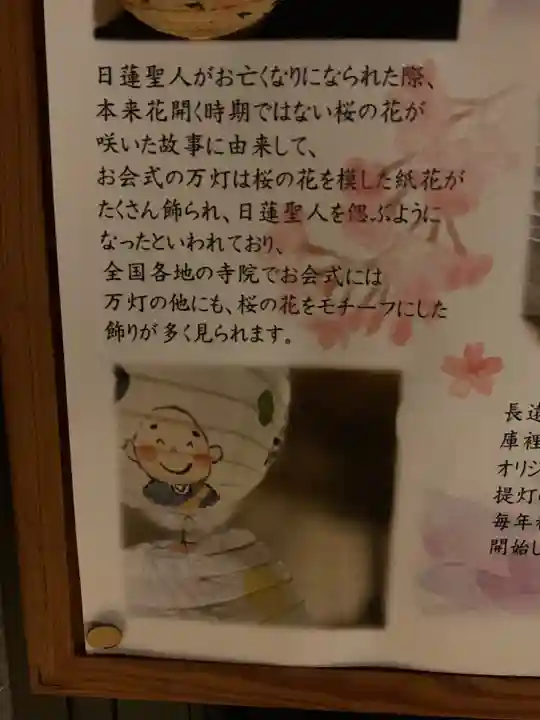 日蓮聖人がお亡くなりになられた際、
本来花開く時期ではない桜の花が
咲いた故事に由来して、
お会式の万灯は桜の花を模した紙花が
たくさん飾られ、日蓮聖人を偲ぶように
なったといわれており、
全国各地の寺院でお会式には
万灯の他にも、桜の花をモチーフにした
飾りが多く見られます。
長遠
庫裡
オリジ
提灯の
毎年
開始し